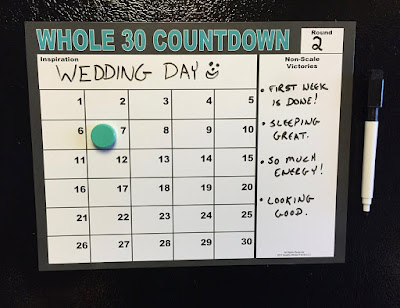 WHOLE 30 COUNTDOWN
Round
2
Inspiration
WEDDING DAY
Non-Scale
Victories
1 2 3 4 5
6 7 8 9 10
11 12 13 14 15
16 17 18 19 20
21 22 23 24 25
26 27 28 29 30
• FIRST WEEK
IS DONE!
• SLEEPING
GREAT.
• SO MUCH
ENERGY!
• LOOKING
GOOD.